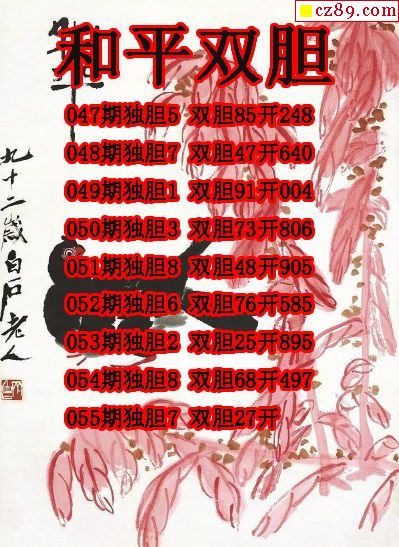 cz89.com
和平双胆
047期独胆5 双胆85开248
048期独胆7 双胆47开640
049期独胆1 双胆91开004
050期独胆3 双胆73开806
051期独胆8 双胆48开905
052期独胆6 双胆76开585
053期独胆2 双胆25开895
054期独胆8 双胆68开497
055期独胆7 双胆27开
九十二岁白石老人